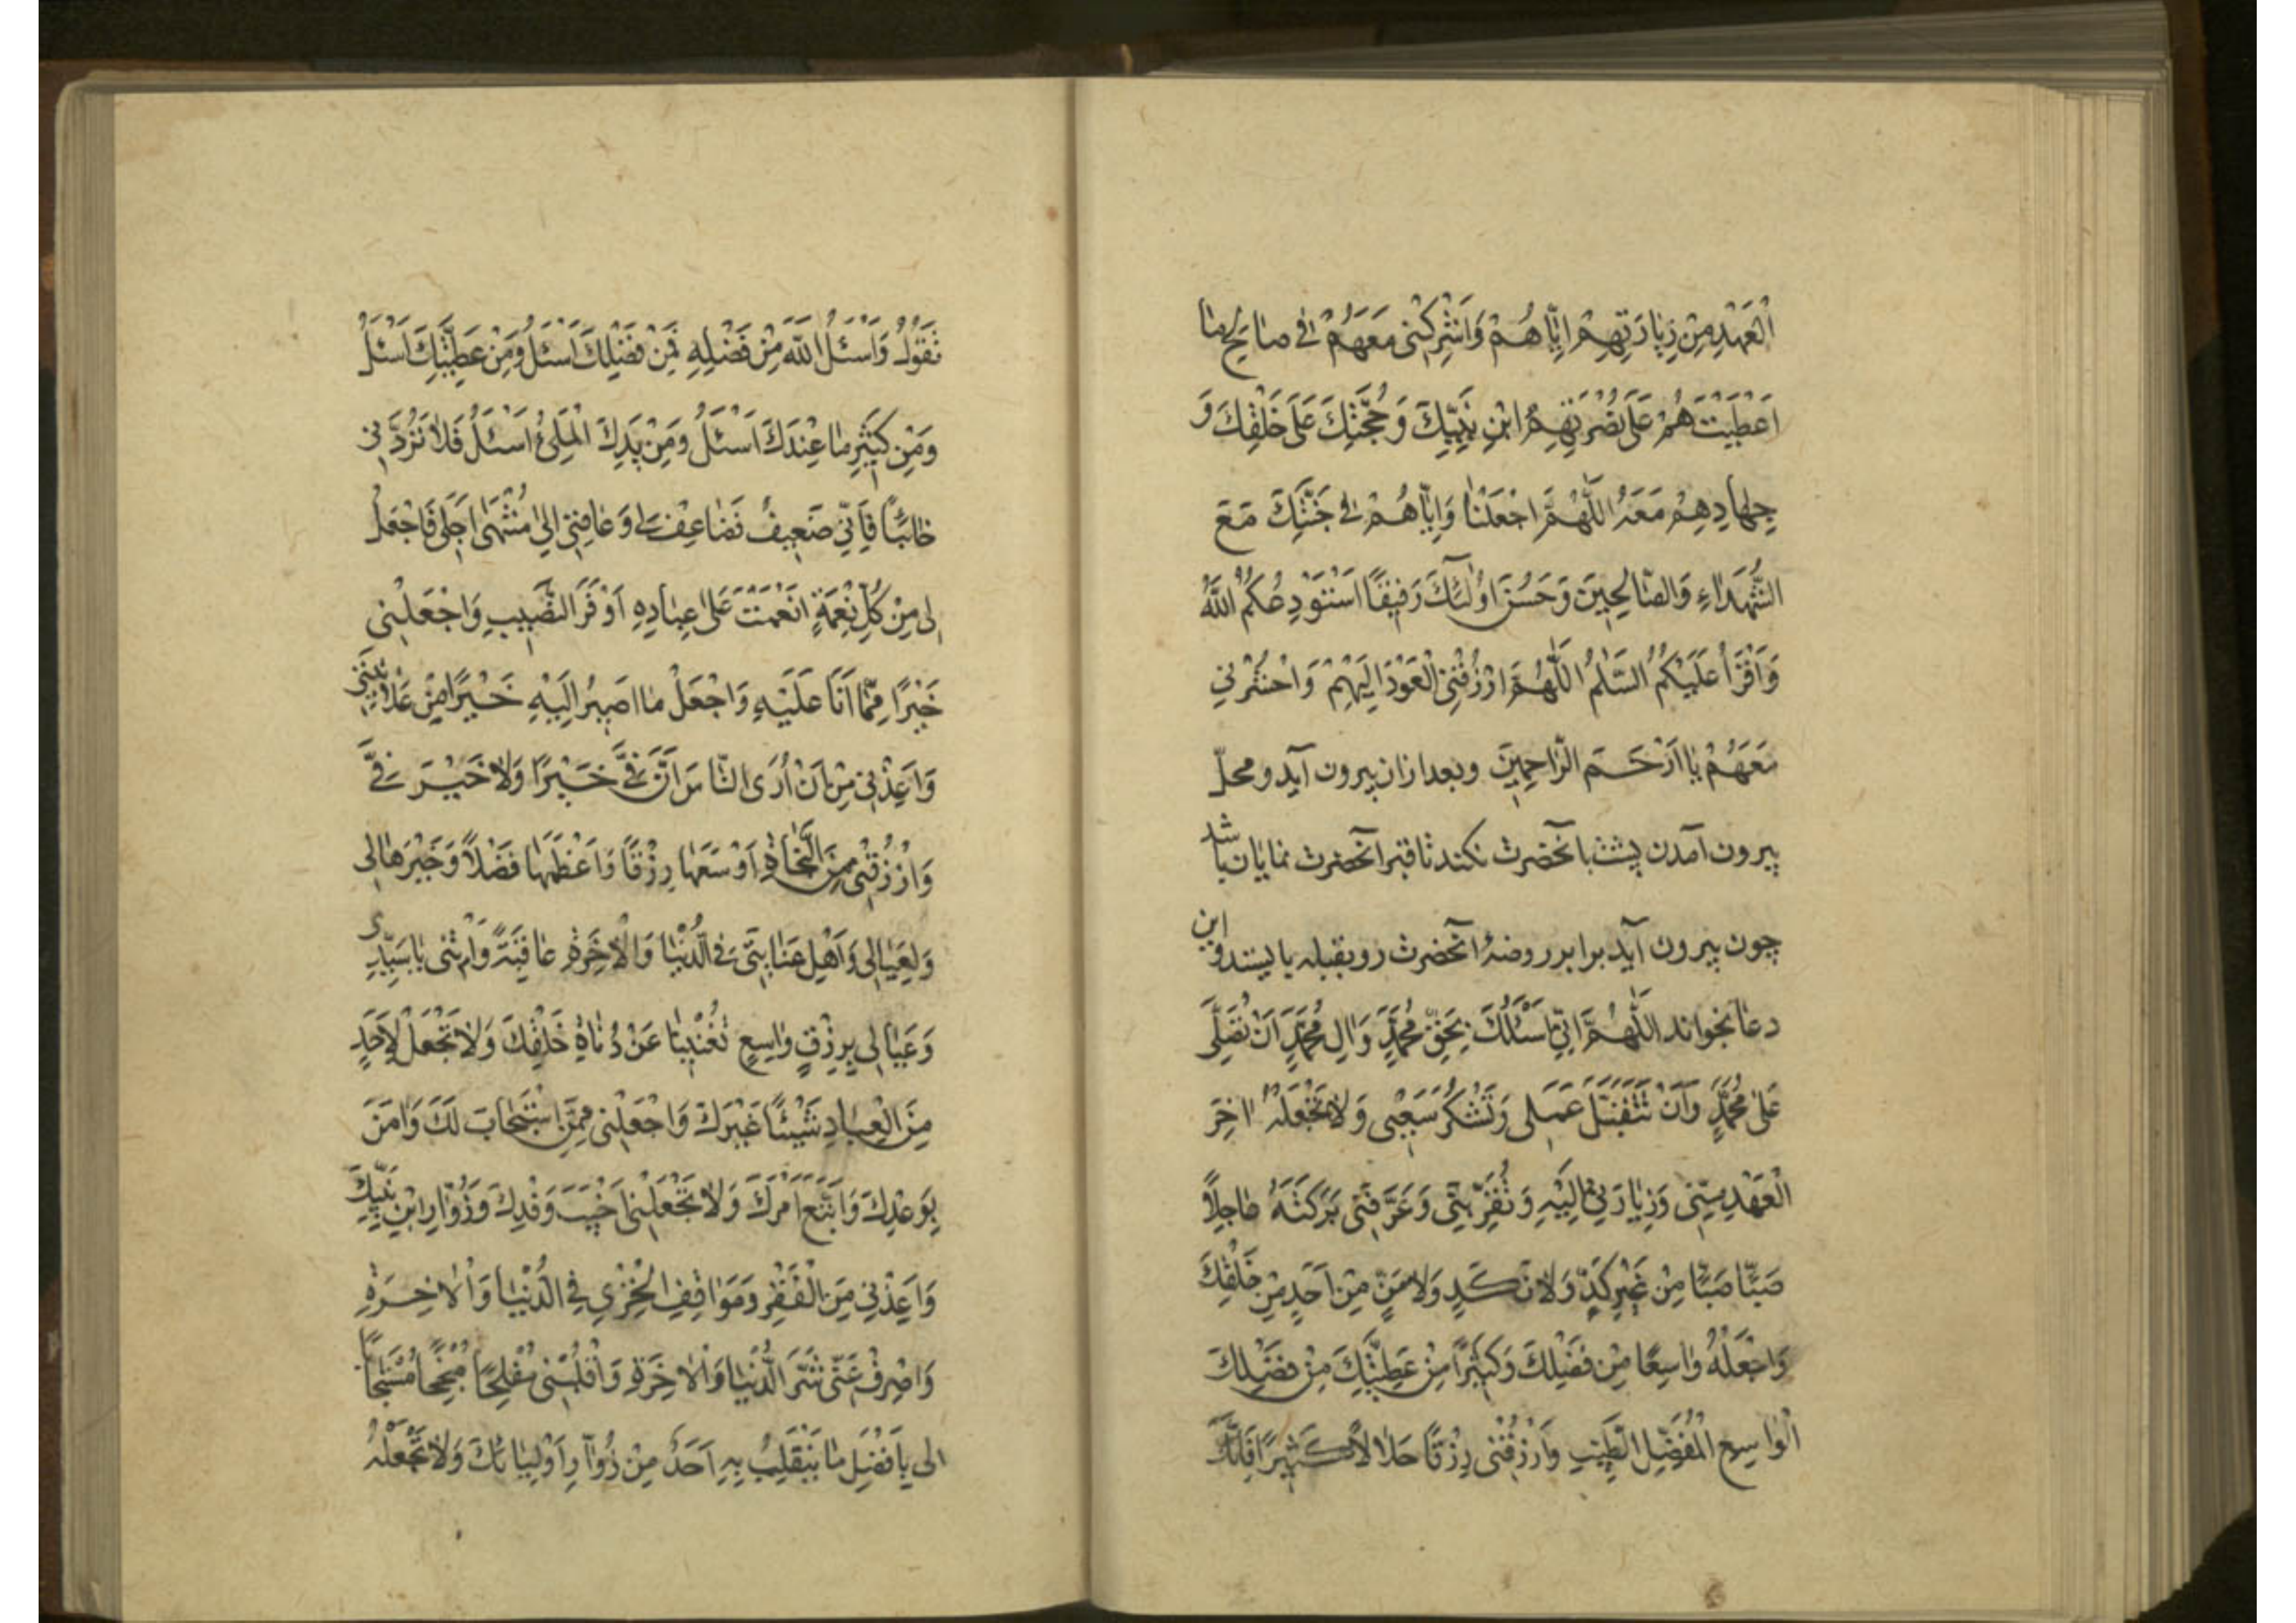 الْعَهْدِ مِنْ زِيَارَتِهِمْ اِيَّاهُمْ وَاَشْرِكْنِى مَعَهُمْ فِى صَالِحِ مَا
اَعْطَيْتَهُمْ عَلَى نُصْرَتِهِمُ ابْنِ نَبِيِّكَ وَحُجَّتِكَ عَلَى خَلْقِكَ وَ
جِهَادِهِمْ مَعَهُ اللّٰهُمَّ اجْعَلْنَا وَاِيَّاهُمْ فِى جَنَّتِكَ مَعَ
الشُّهَدَاءِ وَالصَّالِحِينَ وَحَسُنَ اُولٰئِكَ رَفِيقًا اَسْتَوْدِعُكُمُ اللّٰهَ
وَاَقْرَأُ عَلَيْكُمُ السَّلٰمُ اللّٰهُمَّ ارْزُقْنِى الْعَوْدَ اِلَيْهِمْ وَاحْشُرْنِى
مَعَهُمْ يَا اَرْحَمَ الرَّاحِمِينَ وبعد ازان بيرون آيد ومحلّ
بيرون آمدن پشت بآنحضرت نكند تا قبر آنحضرت نمايان باشد
چون بيرون آيد برابر روضۀ آنحضرت رو بقبله بايستد و اين
دعا بخواند اللّٰهُمَّ اِنِّى اَسْئَلُكَ بِحَقِّ مُحَمَّدٍ وَاٰلِ مُحَمَّدٍ اَنْ تُصَلِّىَ
عَلٰى مُحَمَّدٍ وَاَنْ تَتَقَبَّلَ عَمَلِى وَتَشْكُرَ سَعْيِى وَلَا تَجْعَلْهُ اٰخِرَ
الْعَهْدِ مِنِّى وَزِيَارَتِى اِلَيْهِ وَتُقِرَّ بَيْتِى وَعَرِّفْنِى بَرَكَتَهُ عَاجِلًا
صَبًّا صَبًّا مِنْ غَيْرِ كَدٍّ وَلَا نَكَدٍ وَلَا مَنٍّ مِنْ اَحَدٍ مِنْ خَلْقِكَ
وَاجْعَلْهُ وَاسِعًا مِنْ فَضْلِكَ وَكَثِيرًا مِنْ عَطِيَّتِكَ مِنْ فَضْلِكَ
الْوَاسِعِ الْمُفْضِلِ الطَّيِّبِ وَارْزُقْنِى رِزْقًا حَلَالًا كَثِيرًا فَاِنَّكَ
تَقُولُ وَاسْئَلُ اللّٰهَ مِنْ فَضْلِهِ فَمِنْ فَضْلِكَ اَسْئَلُ وَمِنْ عَطِيَّتِكَ اَسْئَلُ
وَمِنْ كَثِيرِ مَا عِنْدَكَ اَسْئَلُ وَمِنْ يَدِكَ الْمَلِئُ اَسْئَلُ فَلَا تَرُدَّنِى
خَائِبًا فَاِنِّى ضَعِيفٌ فَضَاعِفْ لِى وَعَافِنِى اِلىٰ مُنْتَهَى اَجَلِى فَاجْعَلْ
لِى مِنْ كُلِّ نِعْمَةٍ اَنْعَمْتَ عَلَى عِبَادِهِ اَوْفَرَ النَّصِيبِ وَاجْعَلْنِى
خَيْرًا مِمَّا اَنَا عَلَيْهِ وَاجْعَلْ مَا اَصِيرُ اِلَيْهِ خَيْرًا مِنْ عَلَانِيَتِى
وَاَعِذْنِى مِنْ اَنْ اُرَى النَّاسَ اَنَّ فِىَّ خَيْرًا وَلَا خَيْرَ فِىَّ
وَارْزُقْنِى مِنَ التِّجَارَةِ اَوْسَعَهَا رِزْقًا وَاَعْظَمَهَا فَضْلًا وَخَيْرَهَا لِى
وَلِعَيَالِى وَاَهْلِ عَنَايَتِى فِى الدُّنْيَا وَالْاٰخِرَةِ عَافِيَةً وَاٰتِنِى يَا سَيِّدِى
وَعَيَالِى بِرِزْقٍ وَاسِعٍ تُغْنِينَا عَنْ دُنَاةِ خَلْقِكَ وَلَا تَجْعَلْ لِاَحَدٍ
مِنَ الْعِبَادِ شَيْئًا غَيْرَكَ وَاجْعَلْنِى مِمَّنِ اسْتَجَابَ لَكَ وَاٰمَنَ
بِوَعْدِكَ وَاتَّبَعَ اَمْرَكَ وَلَا تَجْعَلْنِى اَخْيَبَ وَفْدِكَ وَزُوَّارِ ابْنِ نَبِيِّكَ
وَاَعِذْنِى مِنَ الْفَقْرِ وَمَوَاقِفِ الْخِزْىِ فِى الدُّنْيَا وَالْاٰخِرَةِ
وَاصْرِفْ عَنِّى شَرَّ الدُّنْيَا وَالْاٰخِرَةِ وَاقْلِبْنِى مُفْلِحًا مُنْجِحًا مُسْتَجَابًا
لِى بِاَفْضَلِ مَا يَنْقَلِبُ بِهِ اَحَدٌ مِنْ زُوَّارِ اَوْلِيَائِكَ وَلَا تَجْعَلْهُ